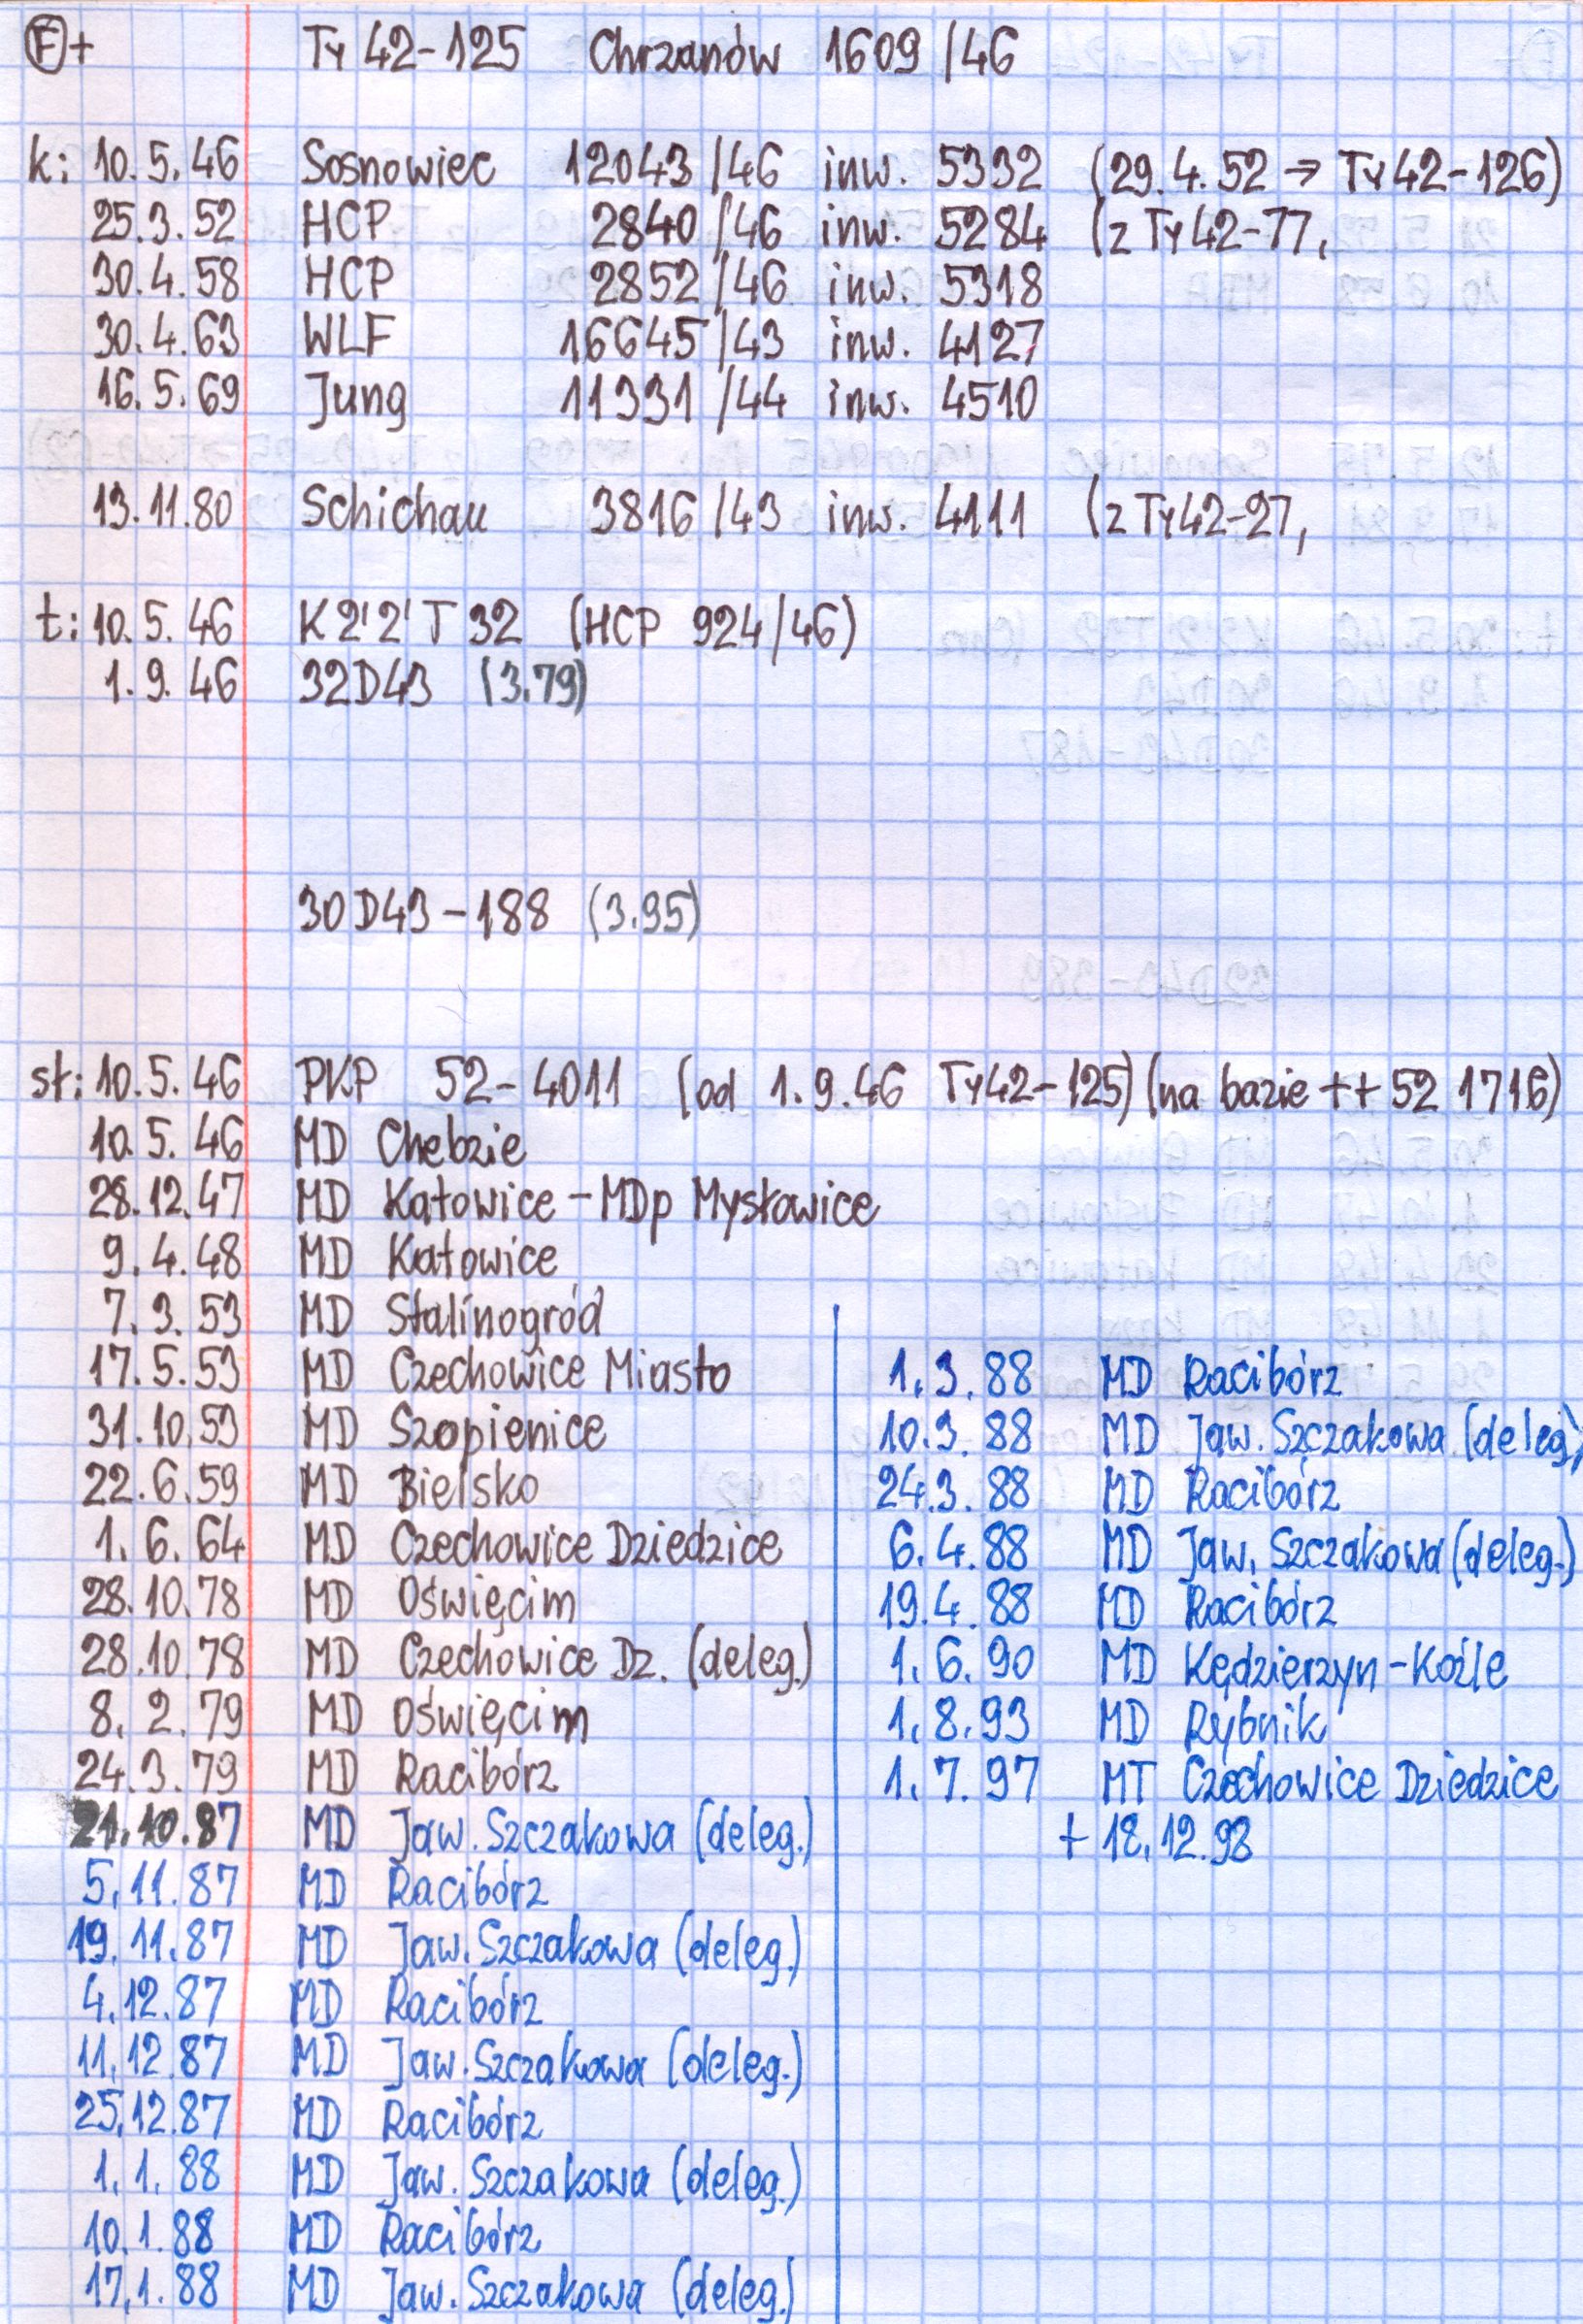 F +
Ty 42-125 Chrzanów 1609/46
k: 10.5.46 Sosnowiec 12043/46 inw. 5332 (29.4.52 → Ty42-126)
25.3.52 HCP 2840/46 inw. 5284 (z Ty42-77,
30.4.58 HCP 2852/46 inw. 5318
30.4.63 WLF 16645/43 inw. 4127
16.5.69 Jung 11331/44 inw. 4510
13.11.80 Schichau 3816/43 inw. 4111 (z Ty42-27,
t: 10.5.46 K 2'2' T 32 (HCP 924/46)
1.9.46 32D43 (3.79)
30D43-188 (3.95)
st: 10.5.46 PKP 52-4011 (od 1.9.46 Ty42-125) (na bazie ++ 52 1716)
10.5.46 MD Chebzie
28.12.47 MD Katowice - MDp Mysłowice
9.4.48 MD Katowice
7.3.53 MD Stalinogród
17.5.53 MD Czechowice Miasto
31.10.53 MD Szopienice
22.6.59 MD Bielsko
1.6.64 MD Czechowice Dziedzice
28.10.78 MD Oświęcim
28.10.78 MD Czechowice Dz. (deleg.)
8.2.79 MD Oświęcim
24.3.79 MD Racibórz
21.10.87 MD Jaw. Szczakowa (deleg.)
5.11.87 MD Racibórz
19.11.87 MD Jaw. Szczakowa (deleg.)
4.12.87 MD Racibórz
11.12.87 MD Jaw. Szczakowa (deleg.)
25.12.87 MD Racibórz
1.1.88 MD Jaw. Szczakowa (deleg.)
10.1.88 MD Racibórz
17.1.88 MD Jaw. Szczakowa (deleg.)
1.3.88 MD Racibórz
10.3.88 MD Jaw. Szczakowa (deleg.)
24.3.88 MD Racibórz
6.4.88 MD Jaw. Szczakowa (deleg.)
19.4.88 MD Racibórz
1.6.90 MD Kędzierzyn-Koźle
1.8.93 MD Rybnik
1.7.97 MT Czechowice Dziedzice
+ 18.12.98